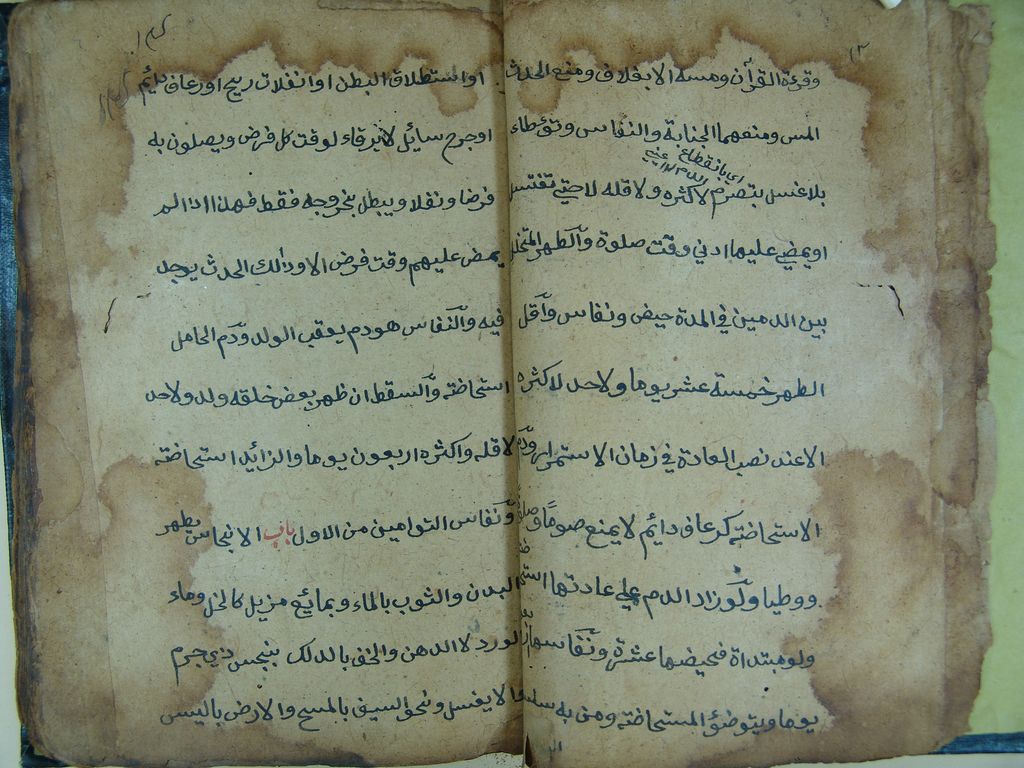 وقرءة القرآن ومسه الا بغلاف ومنع الحدث
المس ومنعهما الجنابة والنفاس وتوطاء
بلا غسل بتصرم لاكثره ولاقله لا حتي تغتسل
اي بانقطاع الدم
اويمضي عليها ادني وقت صلوة وآلطهر المتخلل
بين الدمين في المدة حيض ونفاس وآقل
الطهر خمسة عشر يوما ولا حد لاكثره
الا عند نصب العادة في زمان الاستمرار ودم
الاستحاضة كرعاف دائم لا يمنع صوما وصلوة
ووطيا ولو زاد الدم علي عادتها استحاضة
ولو مبتداة فحيضها عشرة ونفاسها اربعون
يوما ويتوضؤ المستحاضة ومن به سلس
او استطلاق البطن او انفلات ريح او رعاف دائم
او جرح سايل لا يرقاء لوقت كل فرض ويصلون به
فرضا ونفلا ويبطل بخروجه فقط فهذا اذا لم
يمض عليهم وقت فرض الا وذلك الحدث يوجد
فيه وآلنفاس هو دم يعقب الولد ودم الحامل
استحاضة وآلسقط ان ظهر بعض خلقه ولد ولا حد
لاقله واكثره اربعون يوما والزائد استحاضة
ونفاس التوامين من الاول باب الانجاس يطهر
البدن والثوب بالماء وبمائع مزيل كالخل وماء
الورد لا الدهن والخف بالدلك بنجس ذي جرم
والا يغسل ونحو السيف بالمسح والارض باليبس